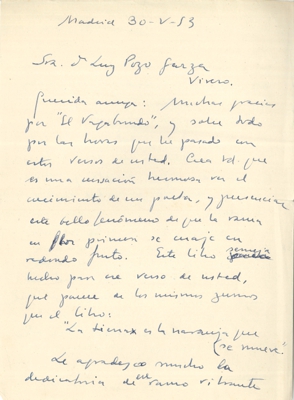 Madrid 30-V-53
Sra. dª Luz Pozo Garza
Vivero.
Querida amiga: Muchas gracias
por "El Vagabundo", y sobre todo
por las horas que he pasado con
estos versos de usted. Crea vd. que
es una sensación hermosa ver el
crecimiento de un poeta, y presenciar
este bello fenómeno de que la rama
en flor primera se cuaje en
redondo fruto. Este libro semeja
hecho para ese verso de usted,
que parece de los mismos zumos
que el libro:
"La tierra es la naranja que
se mueve".
Le agradezco mucho la
dedicatoria de ese ramo vibrante